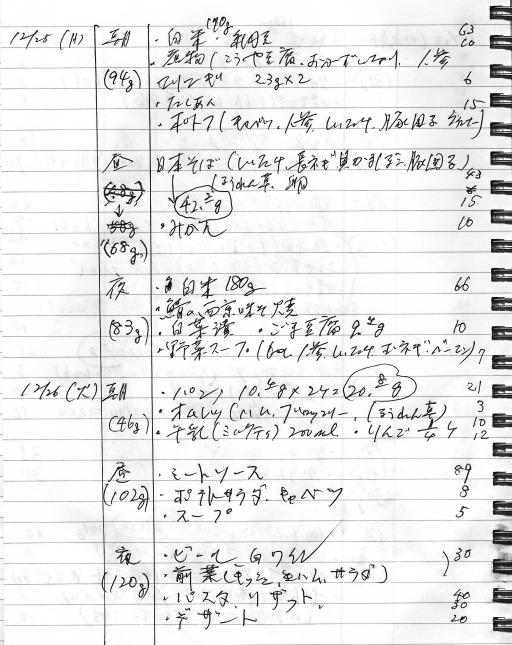 190g
12/25 (月) 朝 ・白米・納豆 63
(94g) ・煮物(こうや豆腐、人参 60
23g×2 6
・たくあん 15
・ポトフ(キャベツ、人参、しいたけ、豚団子
昼 日本そば(しいたけ、長ネギ、豚団子)
ほうれん草、卵 43
42.5g 15
・みかん 10
(68g)
夜 ・白米 180g 66
・鯖の西京味そ焼
(83g) ・白菜漬 ・ごま豆腐 9.4g 10
・野菜スープ(人参、しいたけ、玉ネギ、ベーコン) 7
12/26 (火) 朝 ・パン 10.4g×2コ=20.8g 21
(46g) ・オムレツ(ハム、ほうれん草) 3
・牛乳(ミルクティ) 200ml ・りんご 1/4 10
12
昼 ・ミートソース 89
(102g) ・ポテトサラダ、キャベツ 8
・スープ 5
夜 ・ビール、白ワイン 30
(120g) ・前菜(キッシュ、生ハム、サラダ)
・パスタ、リゾット 40
30
・デザート 20